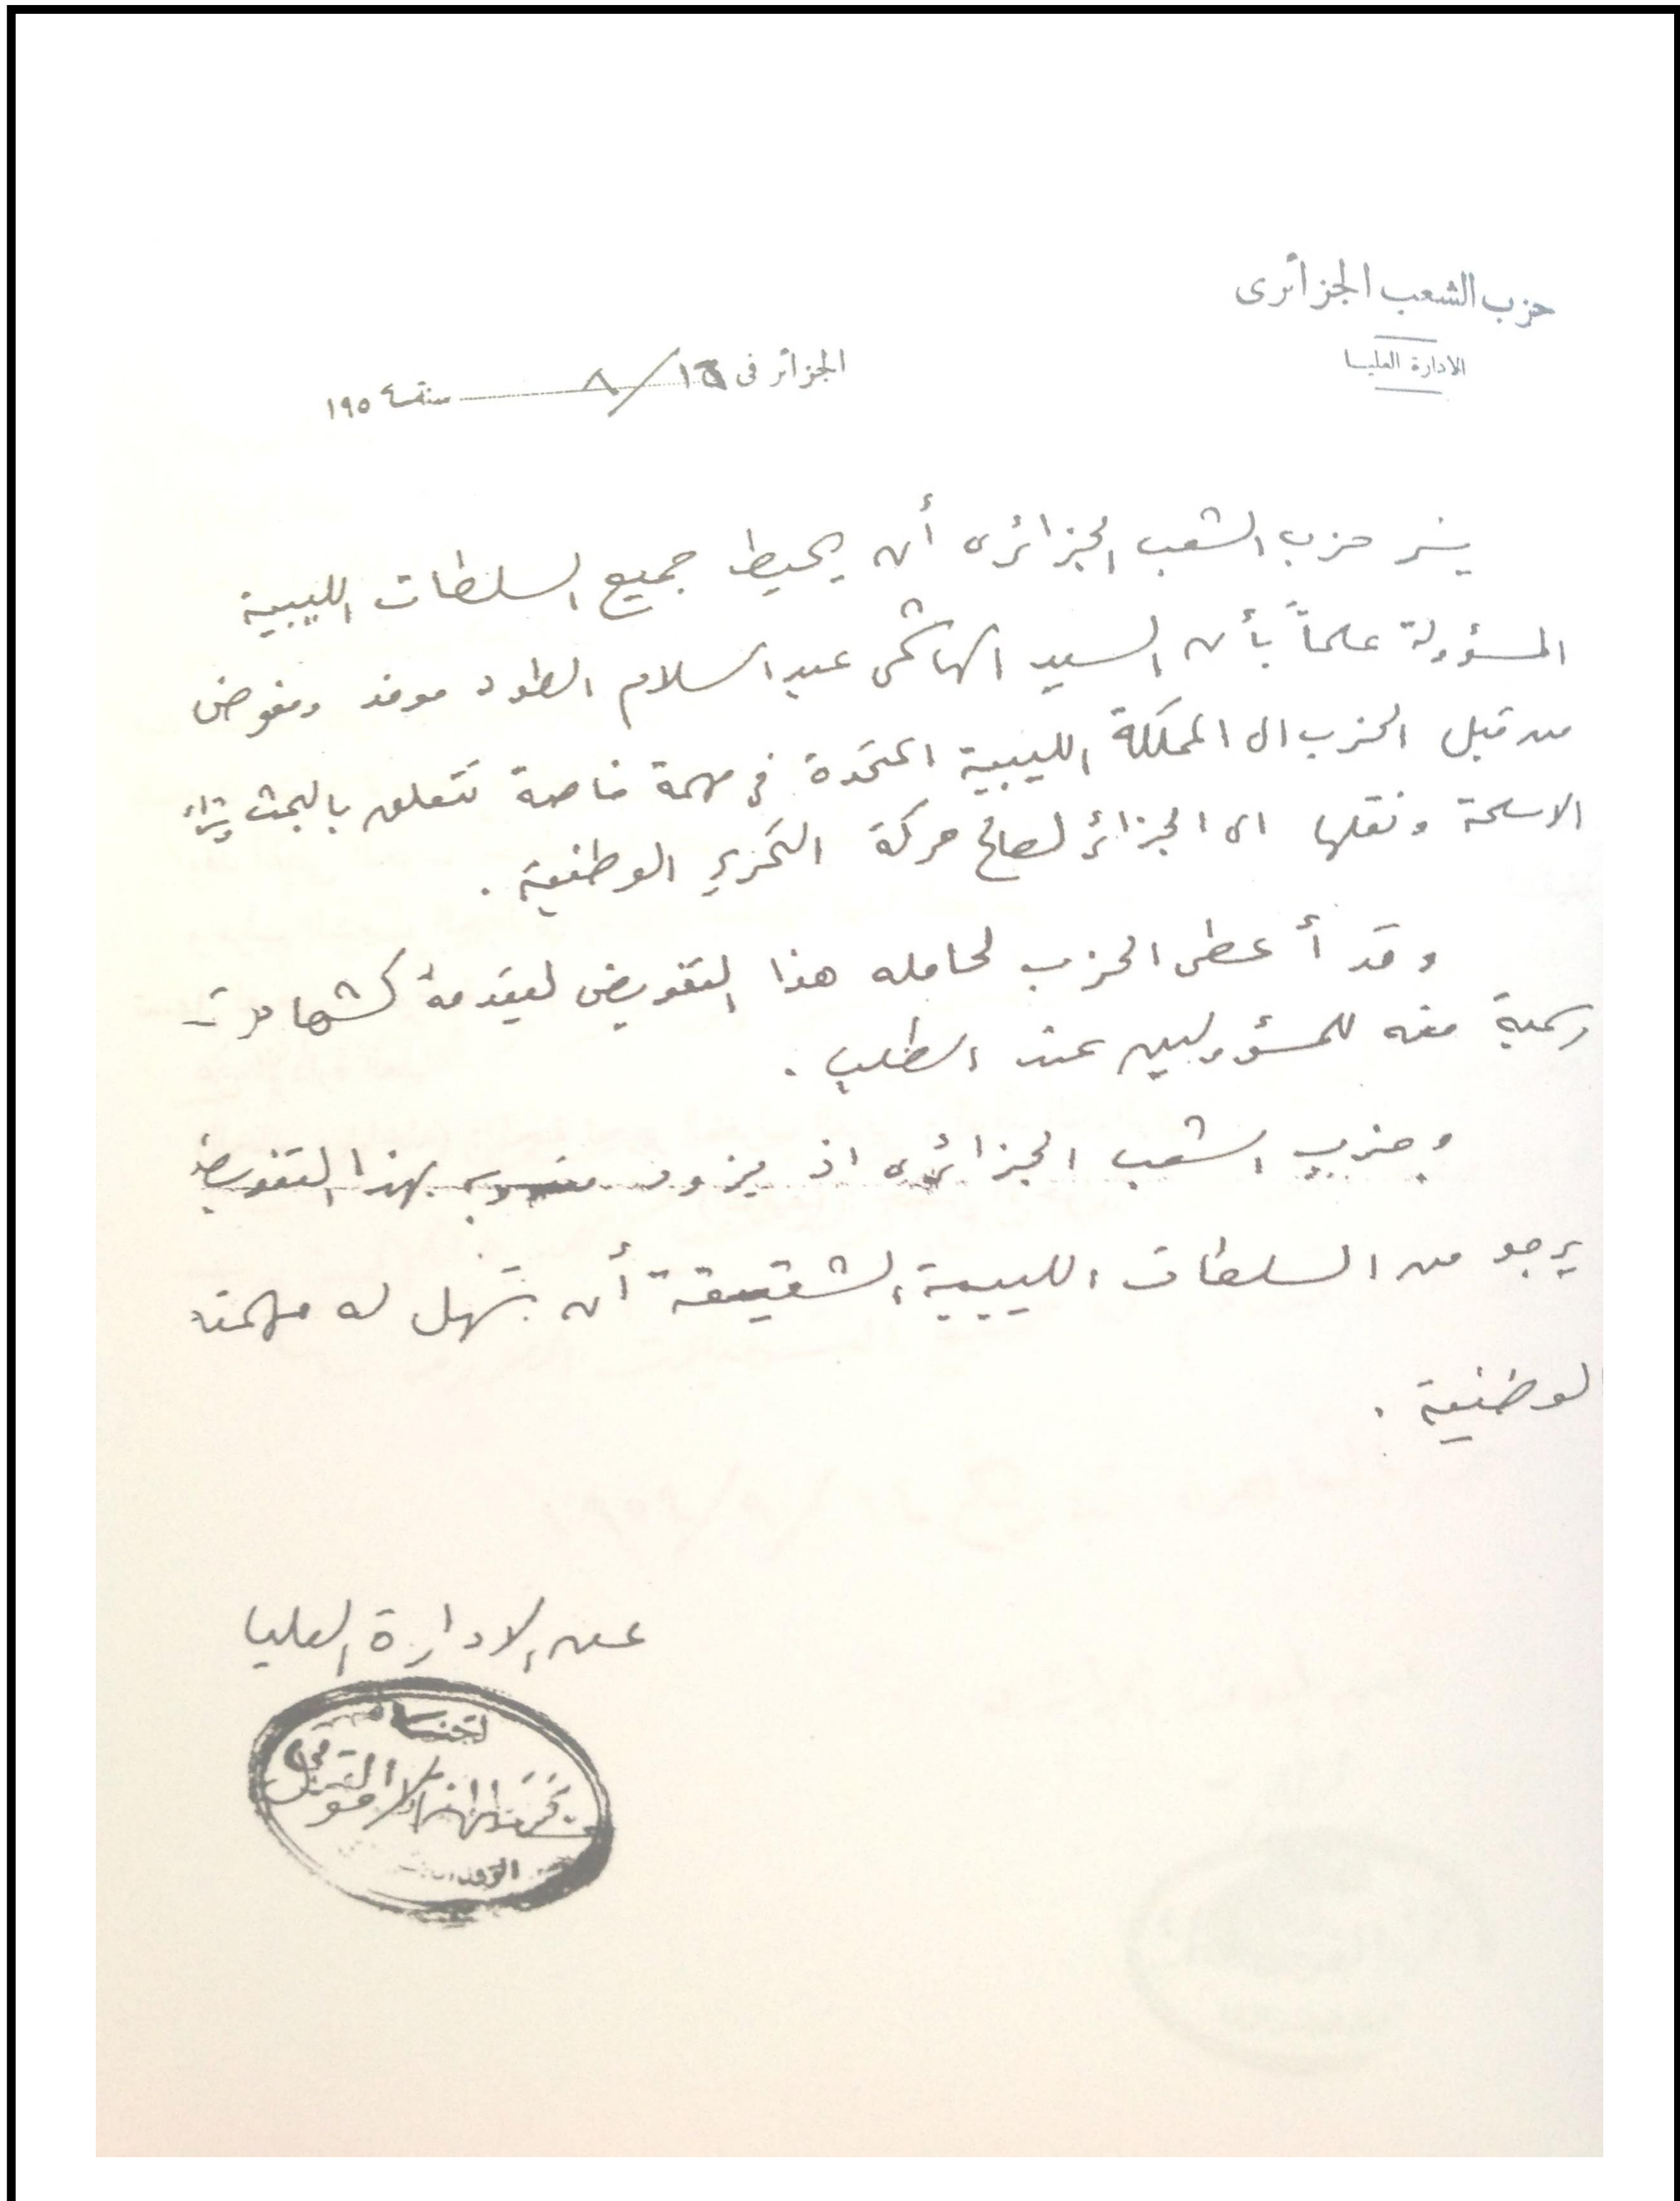 حزب الشعب الجزائرى
الادارة العليا
الجزائر فى ١٦/٨ سنة ١٩٥٤
يسر حزب الشعب الجزائرى أن يحيط جميع السلطات الليبية
المسؤولة علماً بأن السيد الهاشمى عبد السلام الطود موفد ومفوض
من قبل الحزب الى المملكة الليبية المتحدة فى مهمة خاصة تتعلق بالبحث وشراء
الاسلحة ونقلها الى الجزائر لصالح حركة التحرير الوطنية .
وقد أعطى الحزب لحامله هذا التفويض ليقدمه كشهادة
رسمية منه للمسؤولين عند الطلب .
وحزب الشعب الجزائرى اذ يزود مندوبه بهذا التفويض
يرجو من السلطات الليبية الشقيقة أن تسهل له مهمته
الوطنية .
عن الادارة العليا